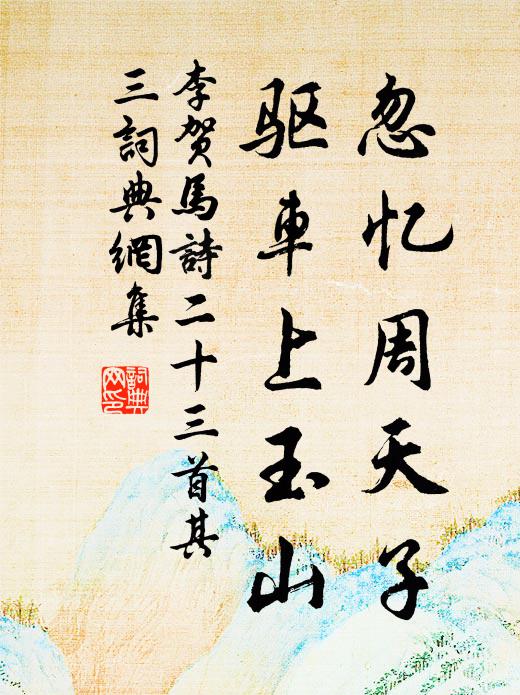 忽忆周天子
驱車上玉山
李贺馬詩二十三首其
三詞典網集
詞典
网印